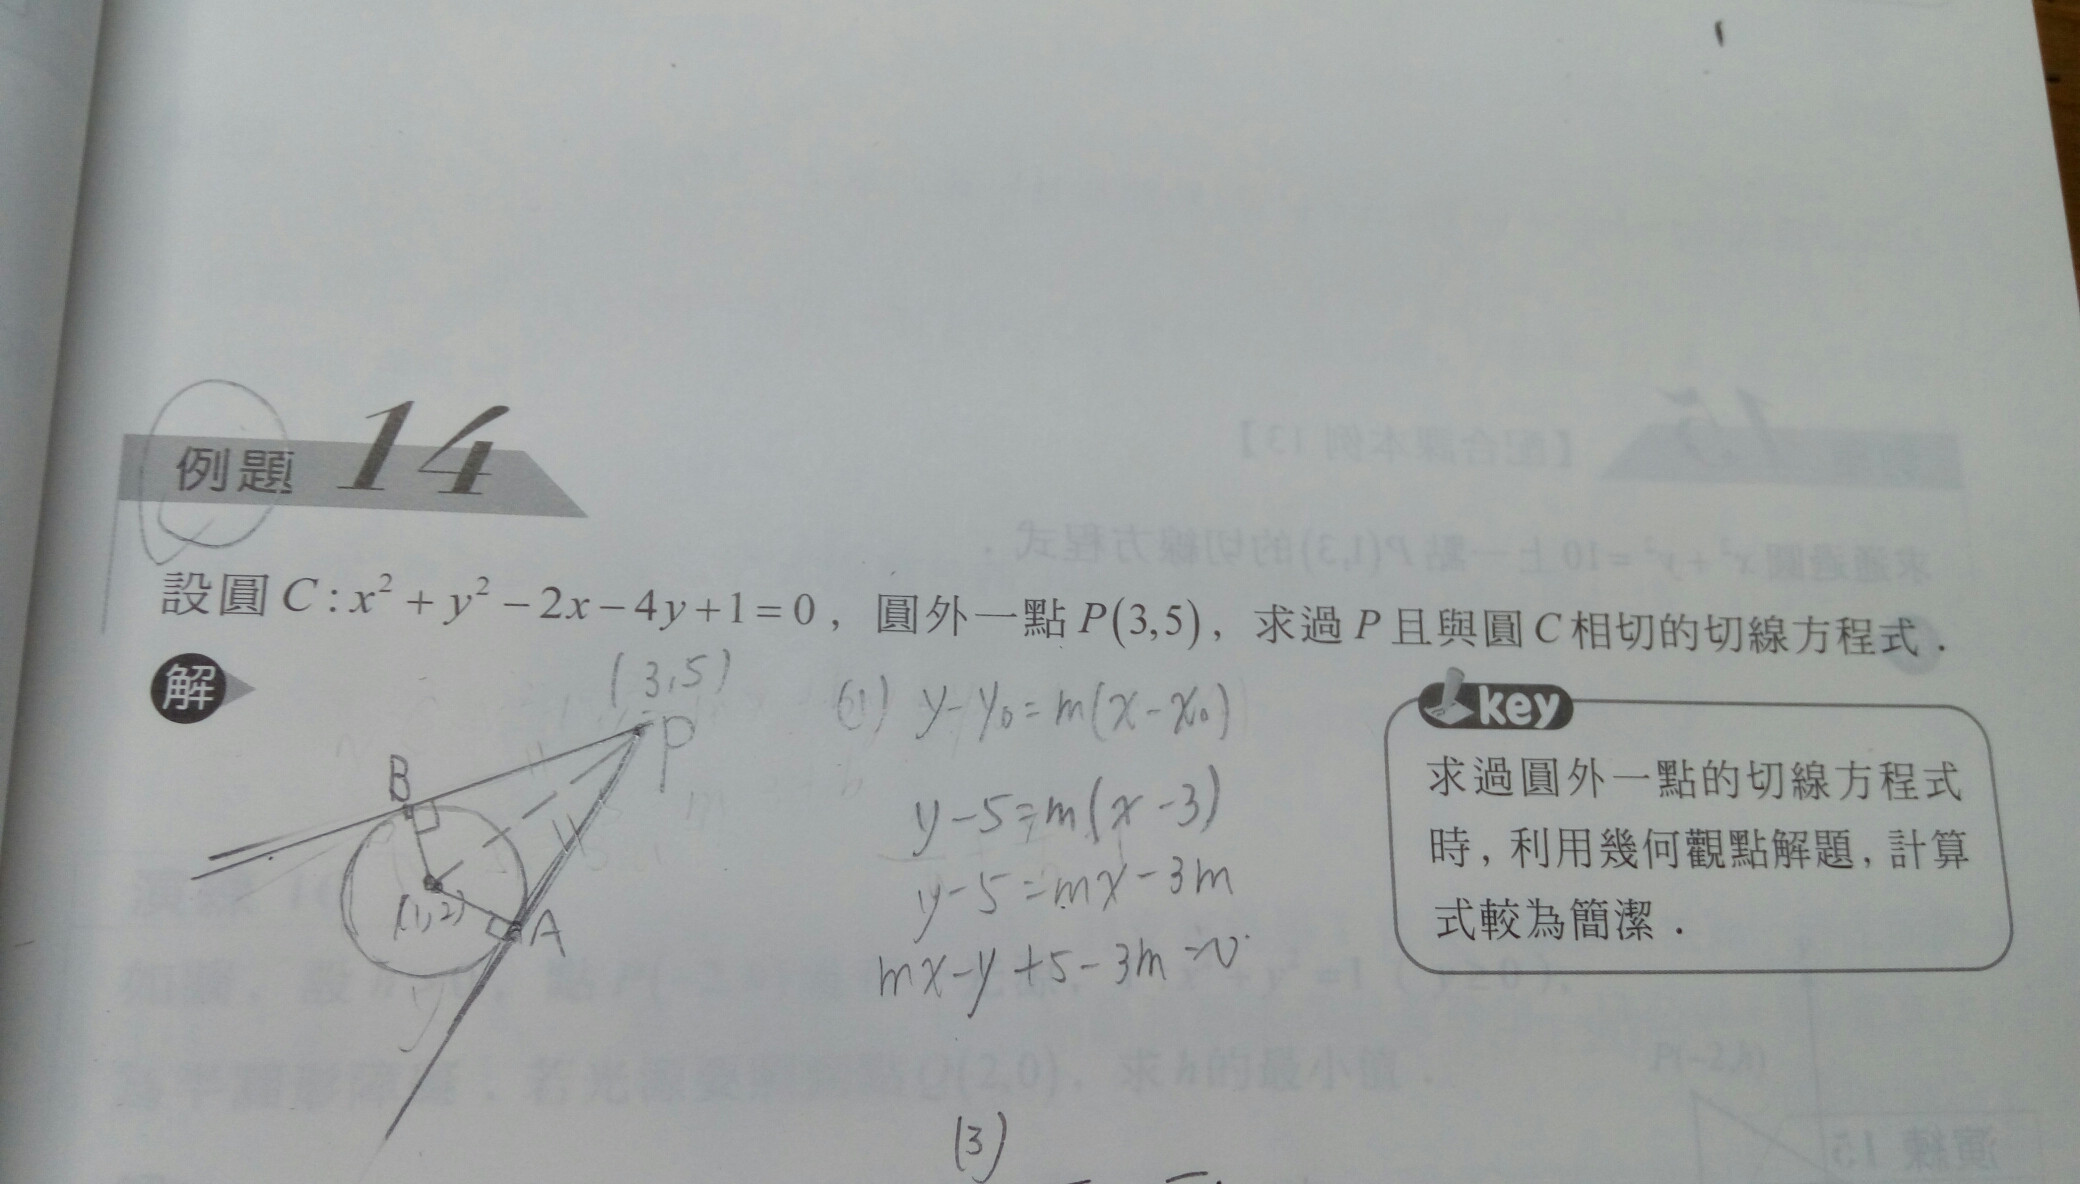 例題 14
設圓 C : x² + y² − 2x − 4y + 1 = 0，圓外一點 P(3,5)，求過 P 且與圓 C 相切的切線方程式．
解
(3,5)
P
B
(1,2)
A
y-y₀=m(x-x₀)
y-5=m(x-3)
y-5=mx-3m
mx-y+5-3m=0
key
求過圓外一點的切線方程式
時，利用幾何觀點解題，計算
式較為簡潔．
(3)